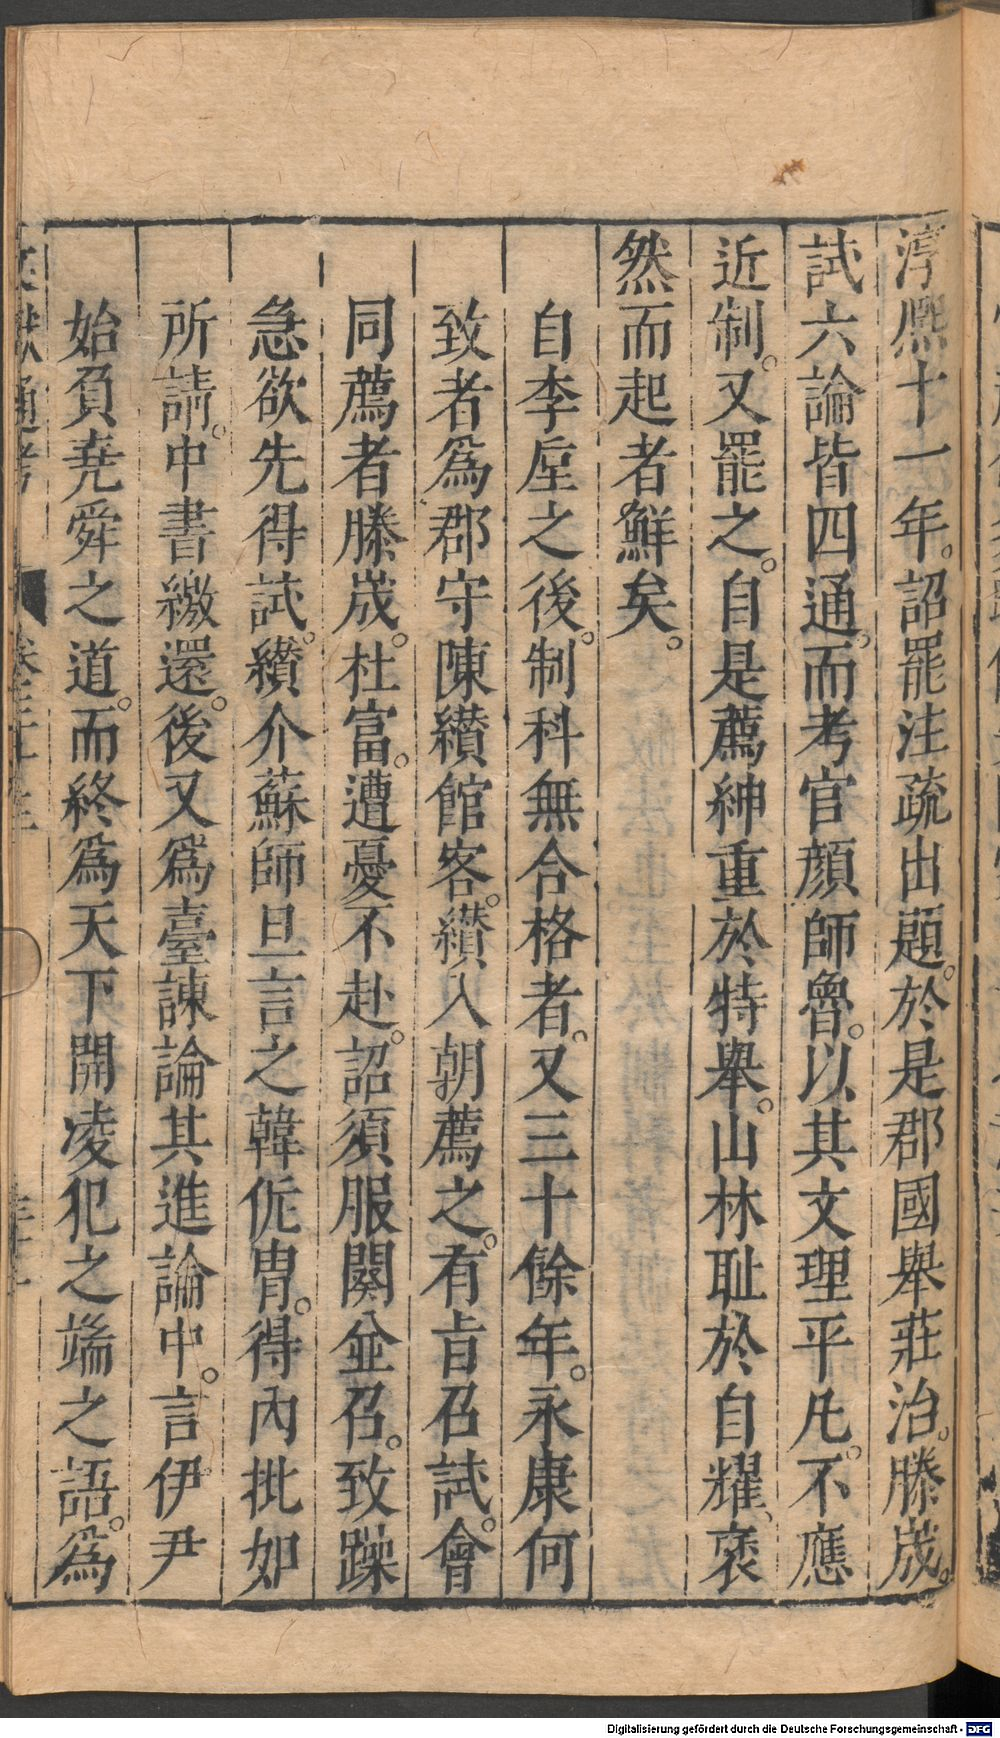 淳熈十一年。詔罷注疏出題。於是郡國舉莊治。滕𡻕。
試六論皆四通。而考官顔師魯。以其文理平凡。不應
近制。又罷之。自是薦紳重於特舉。山林耻於自耀、褎
然而起者鮮矣。
自李垕之後。制科無合格者。又三十餘年。永康何
致者爲郡守陳纉館客。纉入朝薦之。有旨召試。會
同薦者滕𡻕。杜富。遭憂不赴。詔須服闋並召。致躁
急欲先得試。纉介蘇師旦言之韓侂冑。得內批如
所請。中書繳還。後又爲臺諫論其進論中。言伊尹
始負堯舜之道。而終爲天下開凌犯之端之語。爲
文獻通考
卷三十三
Digitalisierung gefördert durch die Deutsche Forschungsgemeinschaft - DFG